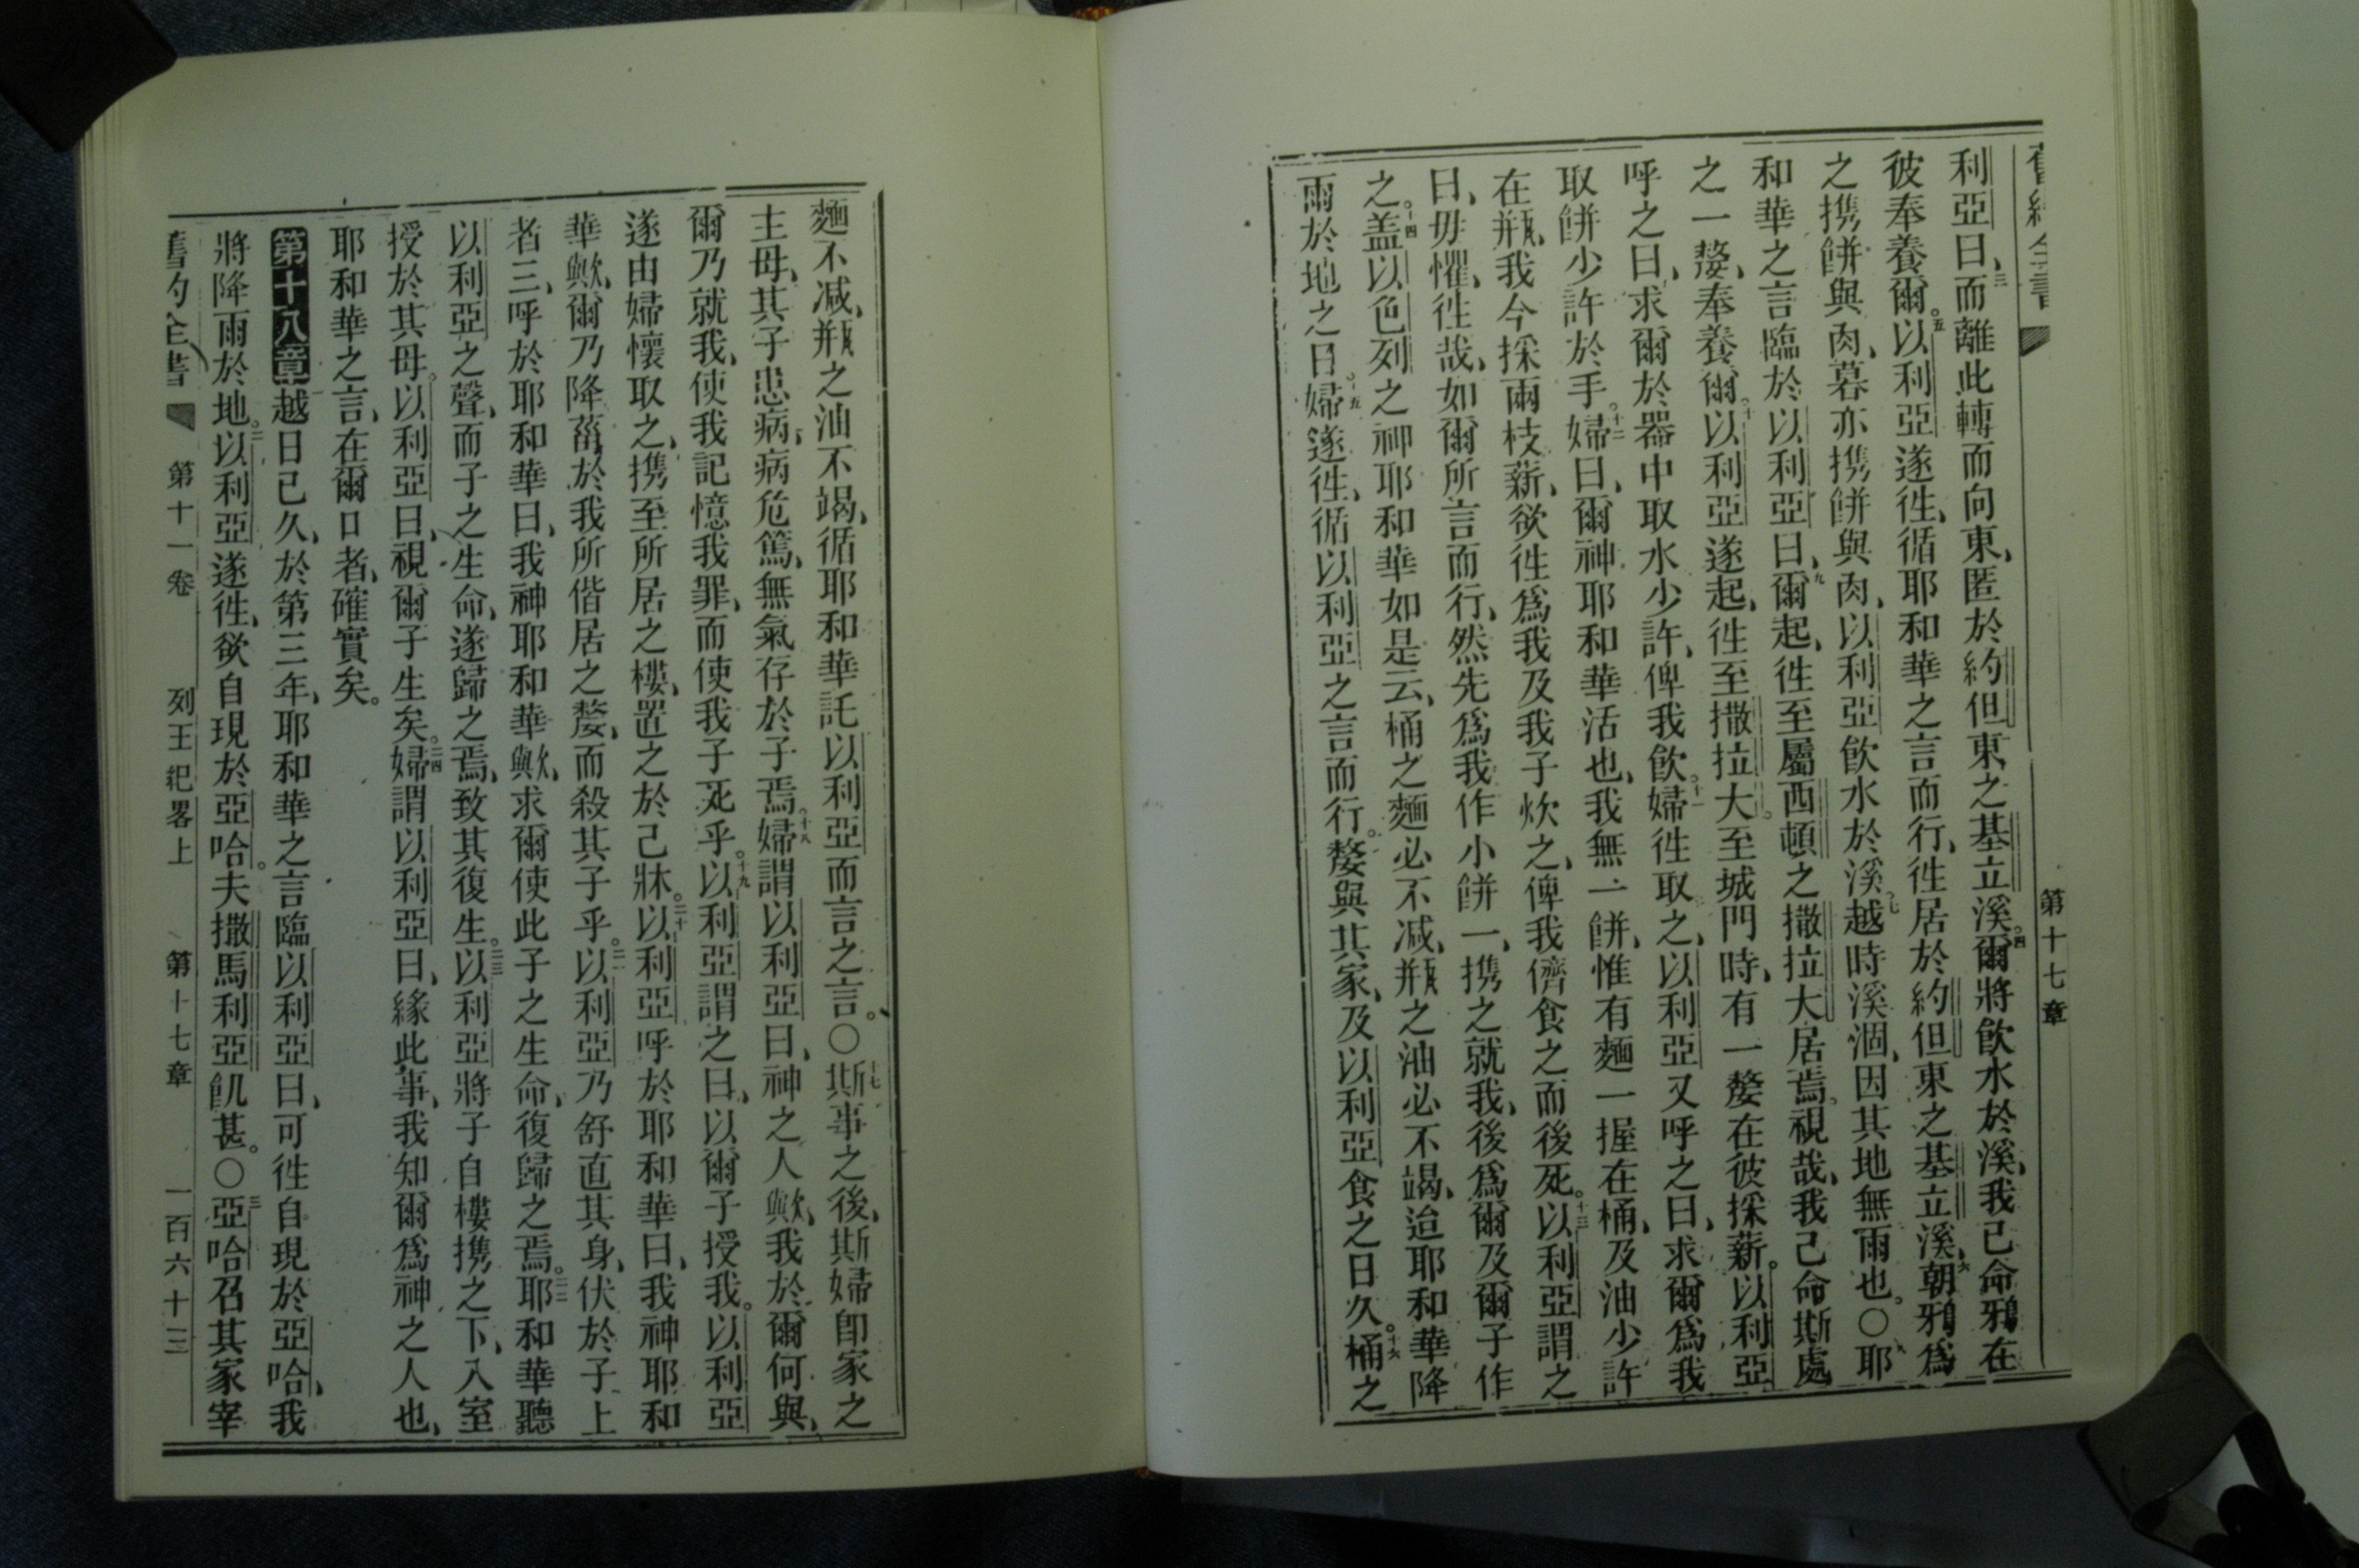 第十七章
利亞曰、三而離此轉而向東、匿於約但東之基立溪。四爾將飲水於溪、我已命鴉在
彼奉養爾。五以利亞遂徃、循耶和華之言而行、徃居於約但東之基立溪、六朝鴉爲
之携餅與肉、暮亦携餅與肉、以利亞飲水於溪。七越時溪涸、因其地無雨也。○八耶
和華之言臨於以利亞曰、九爾起、徃至屬西頓之撒拉大居焉。視哉、我已命斯處
之一嫠、奉養爾。十以利亞遂起、徃至撒拉大。至城門時、有一嫠在彼採薪。以利亞
呼之曰、求爾於器中取水少許、俾我飲。十一婦徃取之、以利亞又呼之曰、求爾爲我
取餅少許於手。十二婦曰、爾神耶和華活也、我無一餅、惟有麵一握在桶、及油少許
在瓶、我今採兩枝薪、欲徃爲我及我子炊之、俾我儕食之而後死。十三以利亞謂之
曰、毋懼、徃哉、如爾所言而行、然先爲我作小餅一、携之就我、後爲爾及爾子作
之。十四盖以色列之神耶和華如是云、桶之麵必不减、瓶之油必不竭、迨耶和華降
雨於地之日。十五婦遂徃、循以利亞之言而行。嫠與其家、及以利亞食之日久。十六桶之
麵不减、瓶之油不竭、循耶和華託以利亞而言之言。○十七斯事之後、斯婦卽家之
主母、其子患病、病危篤、無氣存於子焉。十八婦謂以利亞曰、神之人歟、我於爾何與、
爾乃就我、使我記憶我罪、而使我子死乎。十九以利亞謂之曰、以爾子授我。以利亞
遂由婦懷取之、携至所居之樓、置之於己牀。二十以利亞呼於耶和華曰、我神耶和
華歟、爾乃降菑於我所偕居之嫠、而殺其子乎。二一以利亞乃舒直其身、伏於子上
者三、呼於耶和華曰、我神耶和華歟、求爾使此子之生命、復歸之焉。二二耶和華聽
以利亞之聲、而子之生命、遂歸之焉、致其復生。二三以利亞將子自樓携之下、入室
授於其母。以利亞曰、視爾子生矣。二四婦謂以利亞曰、緣此事、我知爾爲神之人也、
耶和華之言、在爾口者、確實矣。
第十八章越日已久、於第三年、耶和華之言臨以利亞曰、可徃自現於亞哈、我
將降雨於地。二以利亞遂徃、欲自現於亞哈。夫撒馬利亞飢甚。○三亞哈召其家宰
舊約全書 第十一卷 列王紀畧上 第十七章 一百六十三